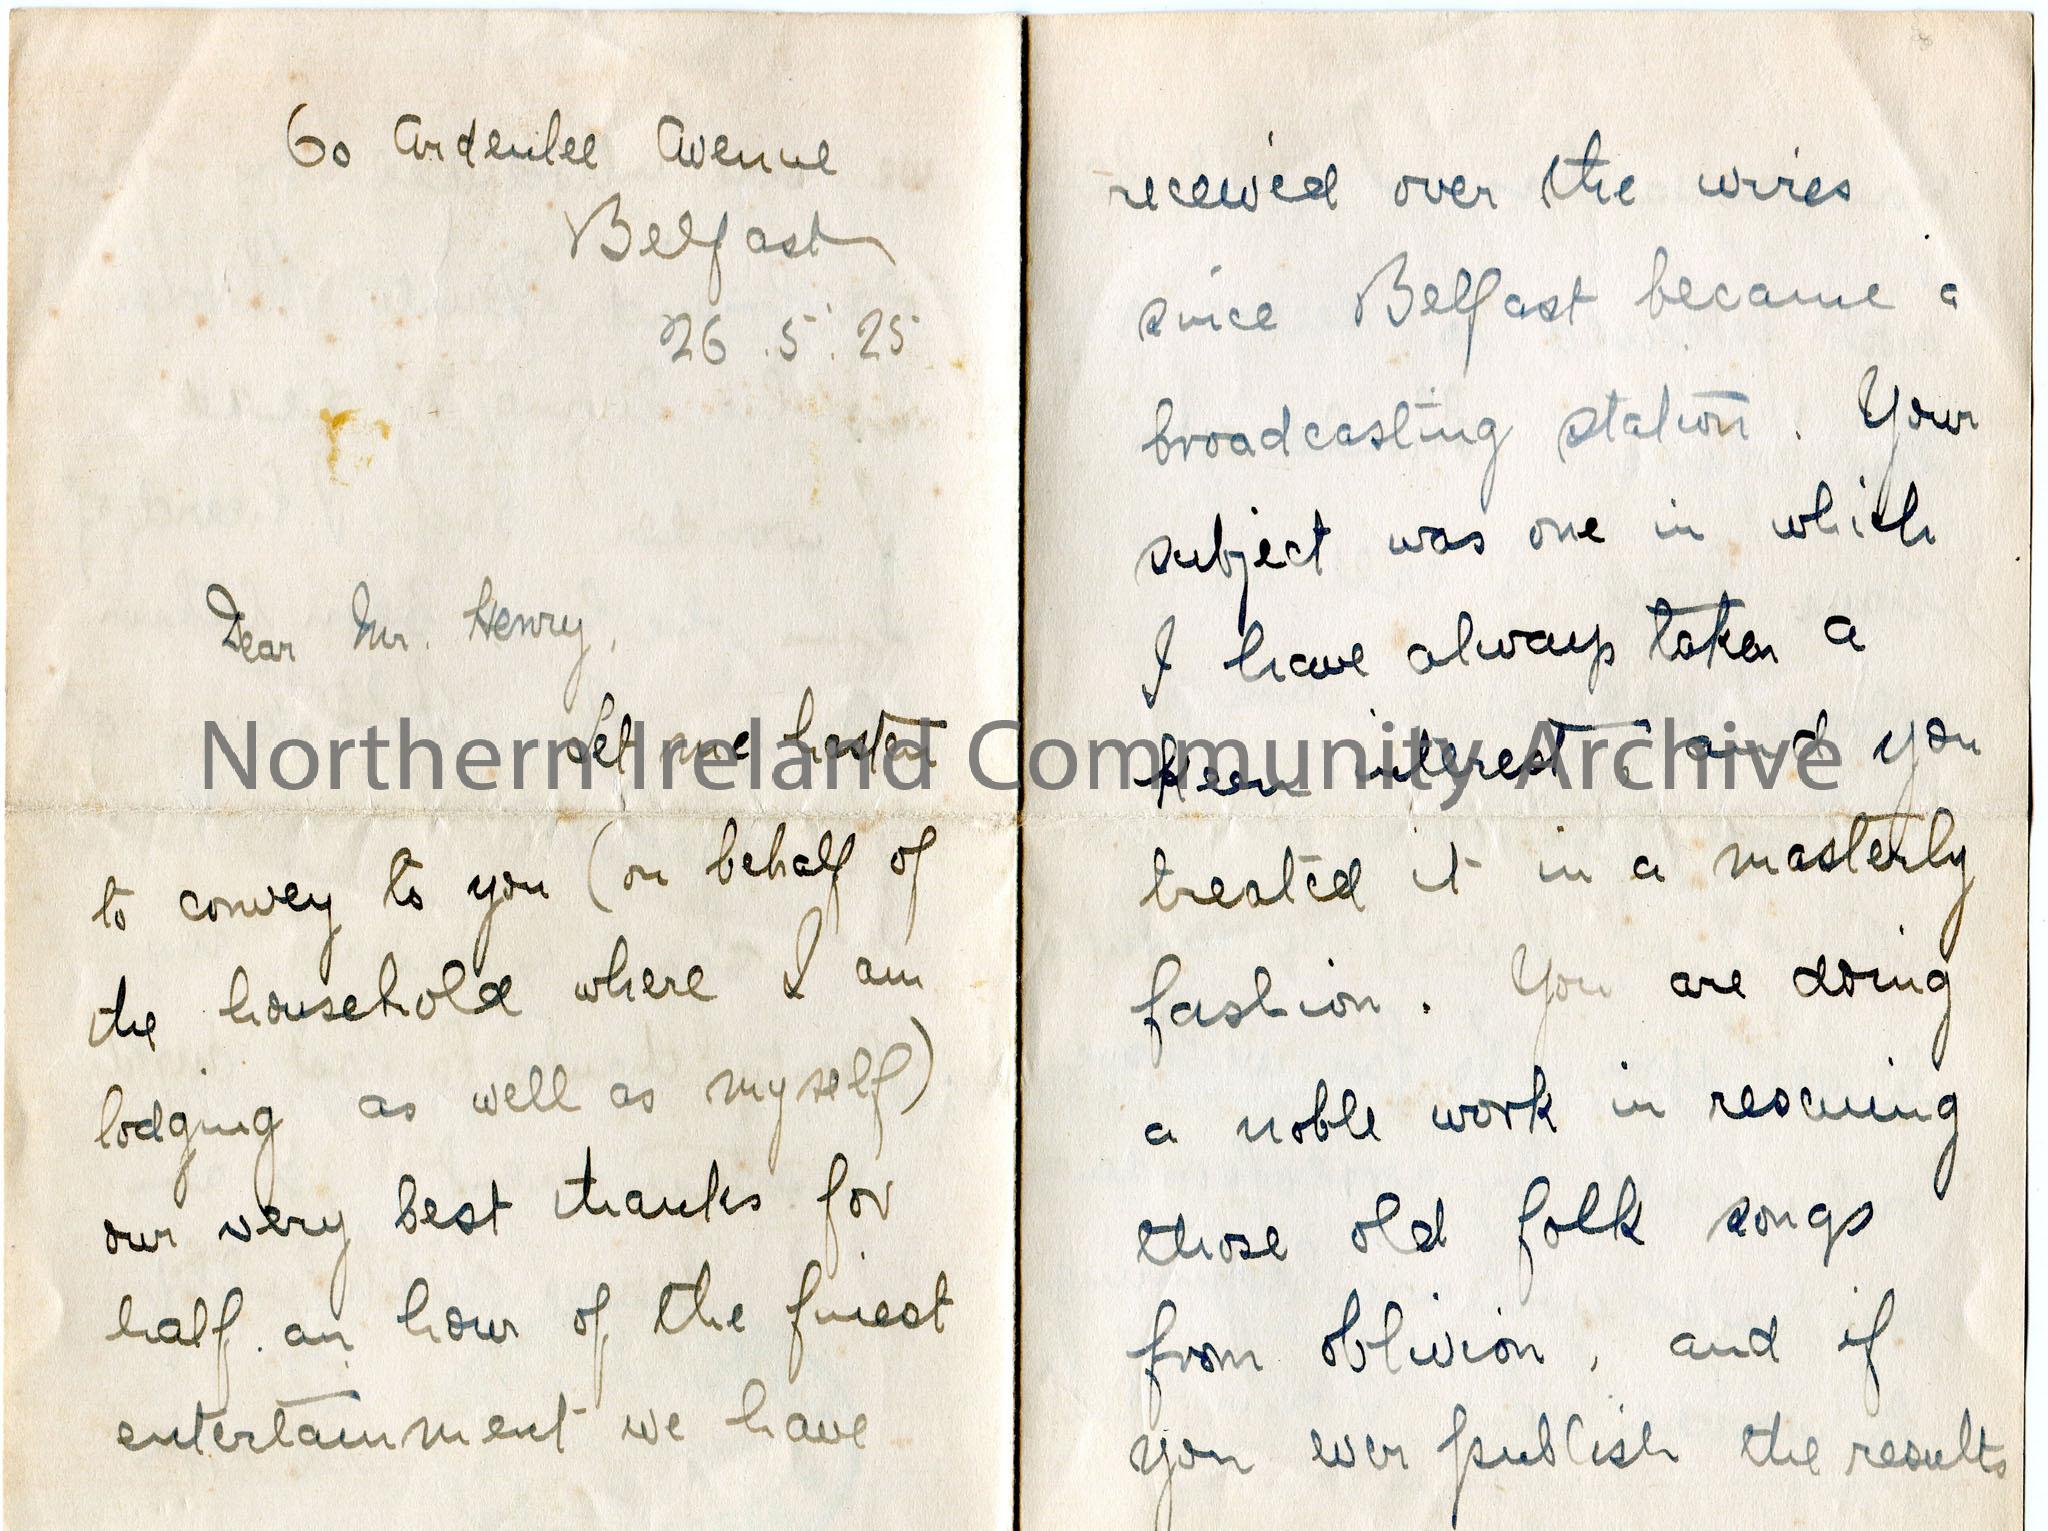 60 Ardenlee Avenue
Belfast
26.5.25
Dear Mr. Henry,
Let me hasten
to convey to you (on behalf of
the household where I am
lodging as well as myself)
our very best thanks for
half an hour of the finest
entertainment we have
received over the wires
since Belfast became a
broadcasting station. Your
subject was one in which
I have always taken a
keen interest, and you
treated it in a masterly
fashion. You are doing
a noble work in rescuing
those old folk songs
from oblivion, and if
you ever publish the results
Northern Ireland Community Archive